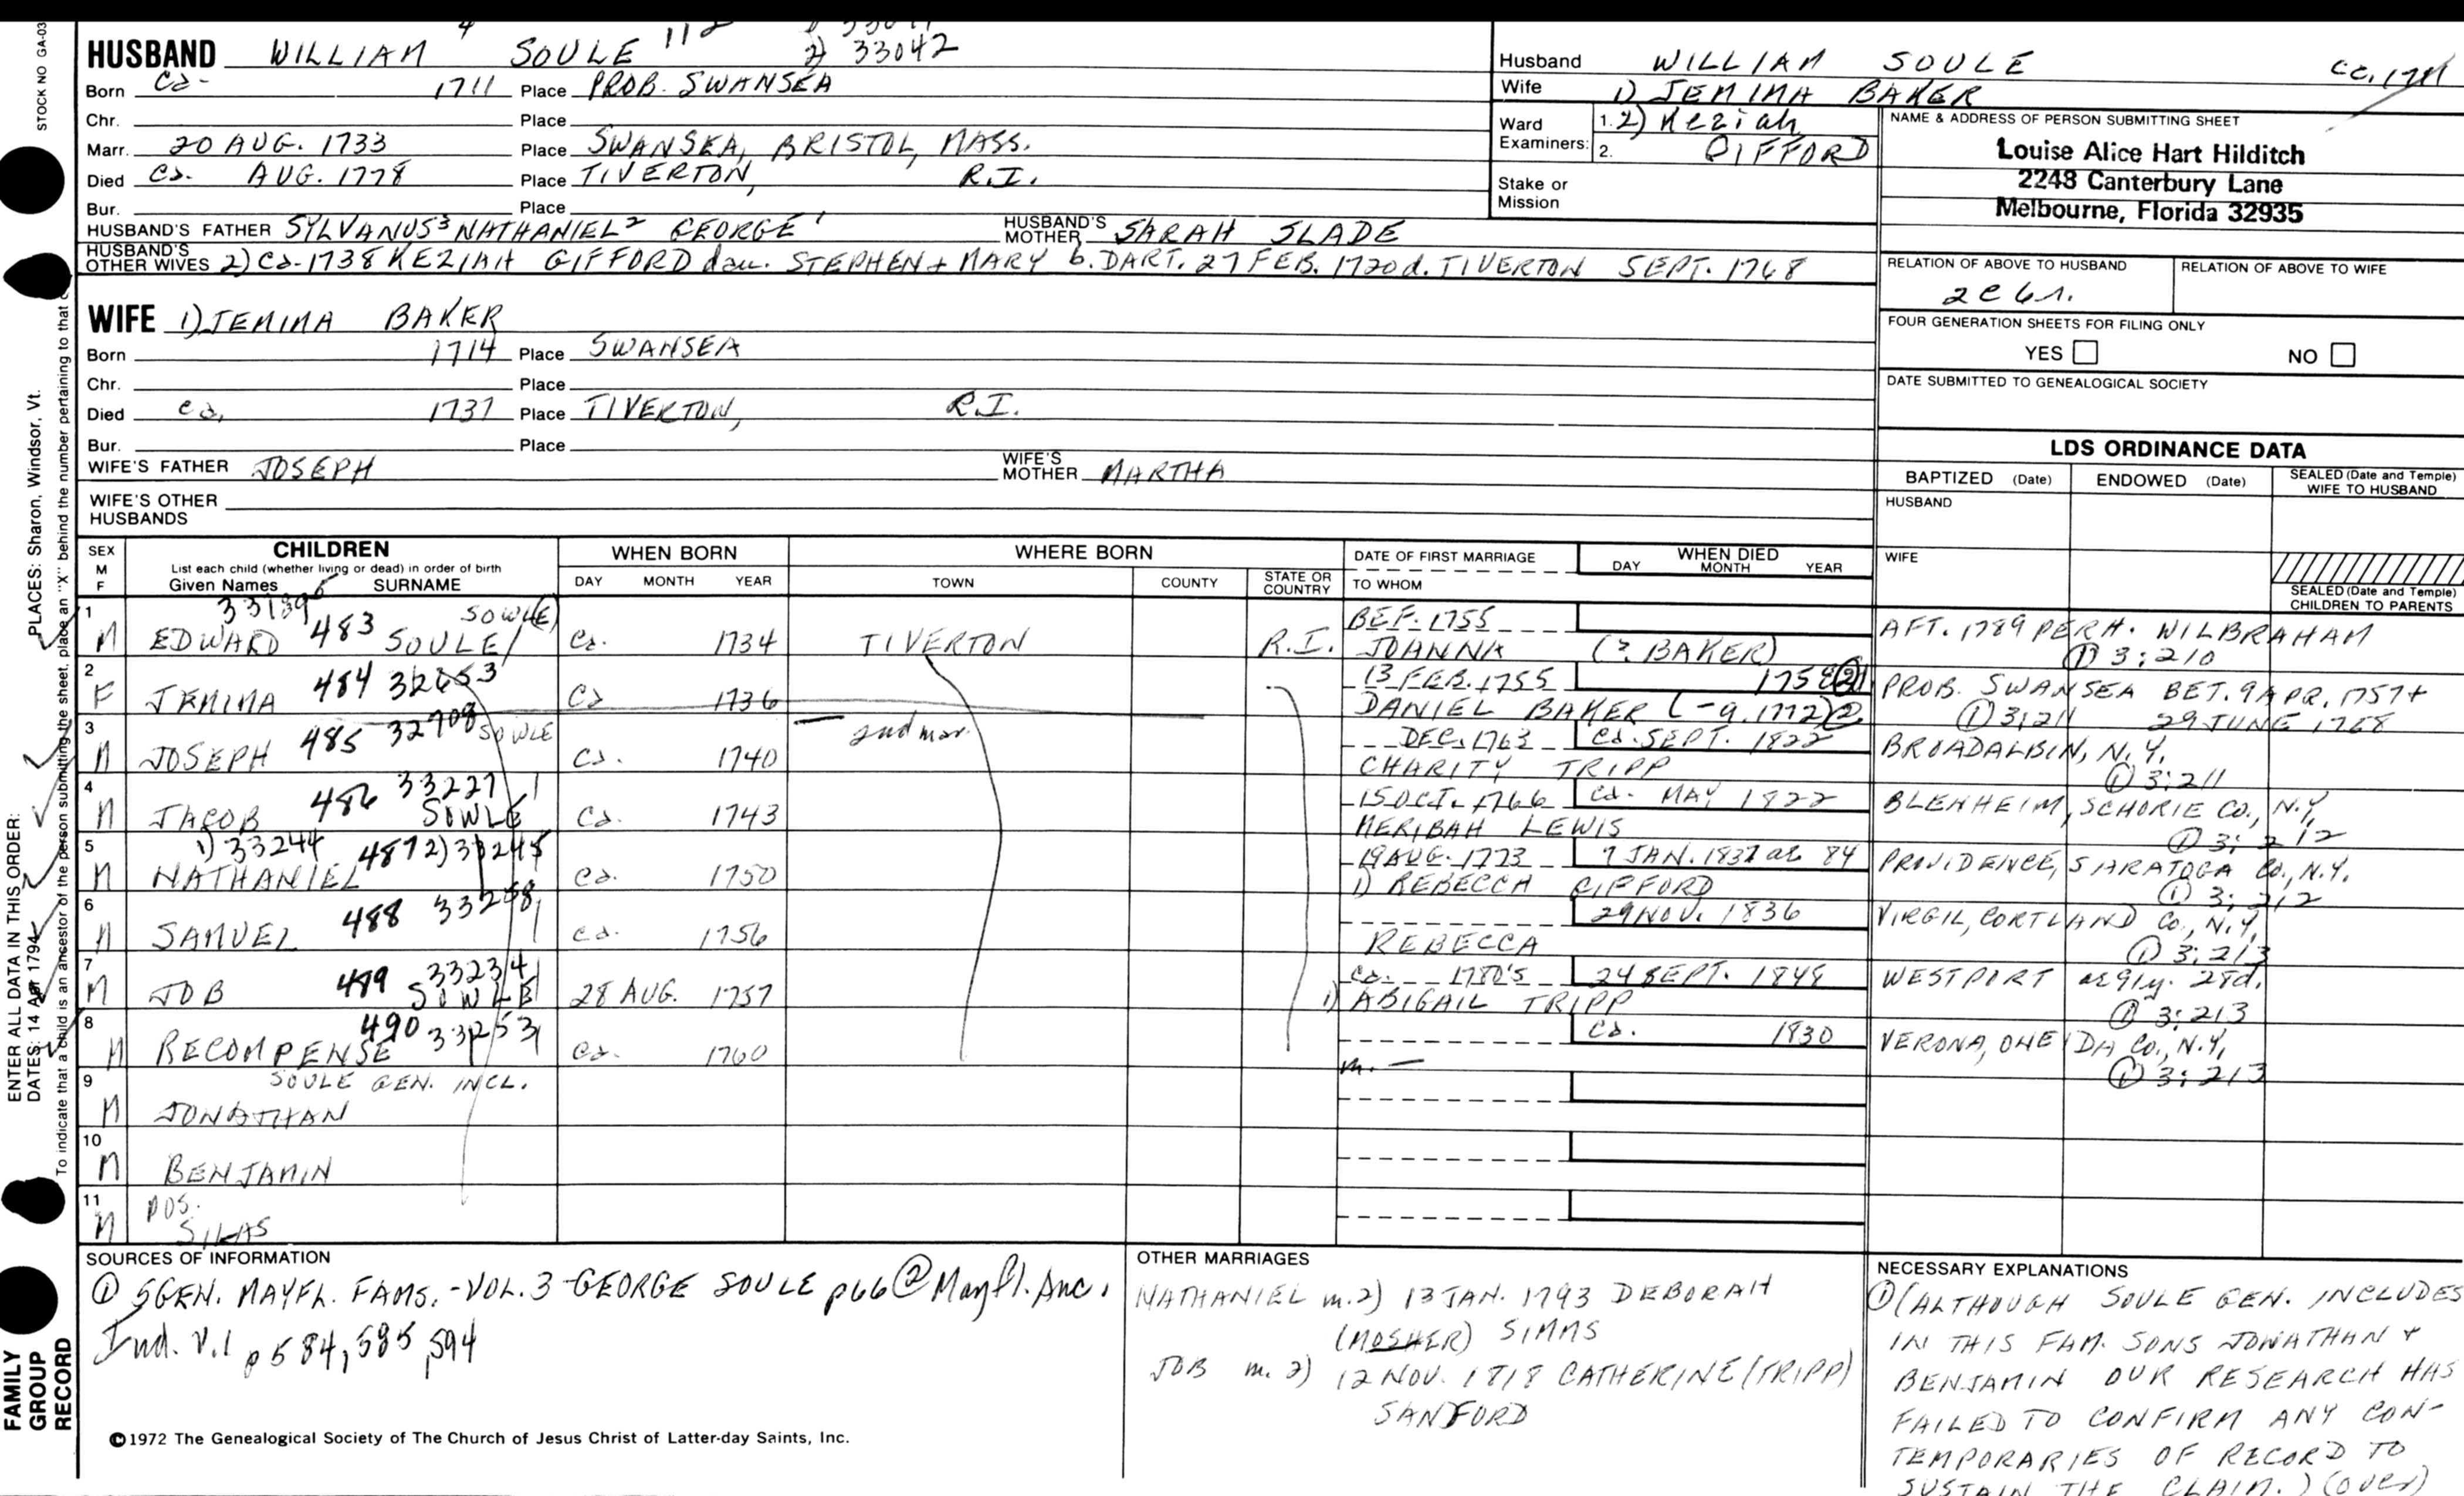 STOCK NO GA-03
HUSBAND WILLIAM 4 SOULE 112 2) 33042
Born Ca- 1711 Place PROB. SWANSEA
Chr. Place
Marr. 20 AUG. 1733 Place SWANSEA, BRISTOL, MASS.
Died Ca. AUG. 1778 Place TIVERTON, R.I.
Bur. Place
HUSBAND'S FATHER SYLVANUS³ NATHANIEL² GEORGE¹ HUSBAND'S MOTHER SARAH SLADE
HUSBAND'S OTHER WIVES 2) Ca-1738 KEZIAH GIFFORD dau. STEPHEN + MARY b. DART. 27 FEB. 1720 d. TIVERTON SEPT. 1768
WIFE 1) JEMIMA BAKER
Born 1714 Place SWANSEA
Chr. Place
Died ca. 1737 Place TIVERTON, R.I.
Bur. Place
WIFE'S FATHER JOSEPH WIFE'S MOTHER MARTHA
WIFE'S OTHER HUSBANDS
Husband WILLIAM SOULE ca. 1711
Wife 1) JEMIMA BAKER
Ward Examiners: 1. 2) Keziah
2. GIFFORD
Stake or Mission
NAME & ADDRESS OF PERSON SUBMITTING SHEET
Louise Alice Hart Hilditch
2248 Canterbury Lane
Melbourne, Florida 32935
RELATION OF ABOVE TO HUSBAND RELATION OF ABOVE TO WIFE
FOUR GENERATION SHEETS FOR FILING ONLY
YES NO
DATE SUBMITTED TO GENEALOGICAL SOCIETY
LDS ORDINANCE DATA
BAPTIZED (Date) ENDOWED (Date) SEALED (Date and Temple) WIFE TO HUSBAND
HUSBAND
WIFE
SEALED (Date and Temple) CHILDREN TO PARENTS
SEX M F CHILDREN WHEN BORN WHERE BORN DATE OF FIRST MARRIAGE WHEN DIED
List each child (whether living or dead) in order of birth
Given Names SURNAME DAY MONTH YEAR TOWN COUNTY STATE OR COUNTRY TO WHOM DAY MONTH YEAR
1 M EDWARD 483 SOULE/ SOWLE Ca. 1734 TIVERTON R.I. BEF. 1755 JOANNA (? BAKER) AFT. 1789 PERH. WILBRAHAM ① 3:210
2 F JEMIMA 484 Ca 1736 13 FEB. 1755 DANIEL BAKER (-9.1772) ② 1758 ② PROB. SWANSEA BET. 9 APR. 1757 + 29 JUNE 1768 ① 3:211
3 M JOSEPH 485 32708 SOWLE Ca. 1740 2nd mar. DEC. 1763 CHARITY TRIPP Ca. SEPT. 1822 BROADALBIN, N.Y. ① 3:211
4 M JACOB 486 33227 SOWLE Ca. 1743 15 OCT. 1766 MERIBAH LEWIS Ca. MAY 1822 BLENHEIM, SCHORIE CO., N.Y. ① 3:212
5 M NATHANIEL 1) 33244 487 2) 33245 Ca. 1750 19 AUG. 1773 1) REBECCA GIFFORD 7 JAN. 1837 ae 84 PROVIDENCE, SARATOGA Co., N.Y. ① 3:212
6 M SAMUEL 488 Ca. 1756 REBECCA 29 NOV. 1836 VIRGIL, CORTLAND Co., N.Y. ① 3:213
7 M JOB 489 33234 SOWLE 28 AUG. 1757 Ca. 1780'S 1) ABIGAIL TRIPP 24 SEPT. 1848 WESTPORT ae 91y. 28d. ① 3:213
8 M RECOMPENSE 490 33253 Ca. 1760 m. — Ca. 1830 VERONA, ONEIDA Co., N.Y. ① 3:213
SOULE GEN. INCL.
9 M JONATHAN
10 M BENJAMIN
11 M POS. SILAS
SOURCES OF INFORMATION
① 5GEN. MAYFL. FAMS. - VOL. 3 - GEORGE SOULE p66 ② Mayfl. Anc.
Ind. V.1 p 584, 585, 594
©1972 The Genealogical Society of The Church of Jesus Christ of Latter-day Saints, Inc.
OTHER MARRIAGES
NATHANIEL m. 2) 13 JAN. 1793 DEBORAH
(MOSHER) SIMMS
JOB m. 2) 12 NOV. 1818 CATHERINE (TRIPP)
SANFORD
NECESSARY EXPLANATIONS
① (ALTHOUGH SOULE GEN. INCLUDES
IN THIS FAM. SONS JONATHAN +
BENJAMIN OUR RESEARCH HAS
FAILED TO CONFIRM ANY CON-
TEMPORARIES OF RECORD TO
SUSTAIN THE CLAIM.) (over)
PLACES: Sharon, Windsor, Vt.
ENTER ALL DATA IN THIS ORDER:
DATES: 14 Apr 1794
To indicate that a child is an ancestor of the person submitting the sheet, place an "X" behind the number pertaining to that
FAMILY GROUP RECORD